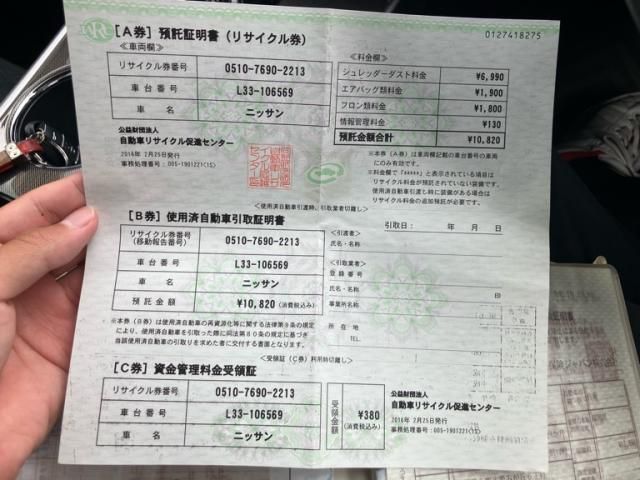 0127418275
[A券] 預託証明書(リサイクル券)
≪車両欄≫
リサイクル券番号 0510-7690-2213
車台番号 L33-106569
車名 ニッサン
公益財団法人
自動車リサイクル促進センター
2016年 2月25日発行
事務処理番号：005-1901221(1S)
≪料金欄≫
シュレッダーダスト料金 ¥6,990
エアバッグ類料金 ¥1,900
フロン類料金 ¥1,800
情報管理料金 ¥130
預託金額合計 ¥10,820
※本券（A券）は車両欄記載の車台番号の車両
にのみ有効です。
※料金欄で「*****」と表示されている項目は
リサイクル料金が預託されていない装備です。
使用済自動車引渡し時に装備がある場合は
リサイクル料金の追加預託が必要です。
≪使用済自動車引渡時、引取業者切離し≫
[B券] 使用済自動車引取証明書
リサイクル券番号
(移動報告番号) 0510-7690-2213
車台番号 L33-106569
車名 ニッサン
預託金額 ¥10,820 (消費税込み)
※本券（B券）は使用済自動車の再資源化等に関する法律第９条の規定
により、使用済自動車を引取った際に同法第８０条の規定に基づき
当該使用済自動車の引取りを求めた者に交付する書面となります。
引取日： 年 月 日
≪引渡者≫
氏名・名称
≪引取業者≫
登録番号
氏名・名称 印
事業所名
所在地
TEL.
≪受領証（C券）利用時切離し≫
[C券] 資金管理料金受領証
リサイクル券番号 0510-7690-2213
車台番号 L33-106569
車名 ニッサン
受領金額 ¥380
(消費税込み)
公益財団法人
自動車リサイクル促進センター
2016年 2月25日発行
事務処理番号：005-1901221(1S)